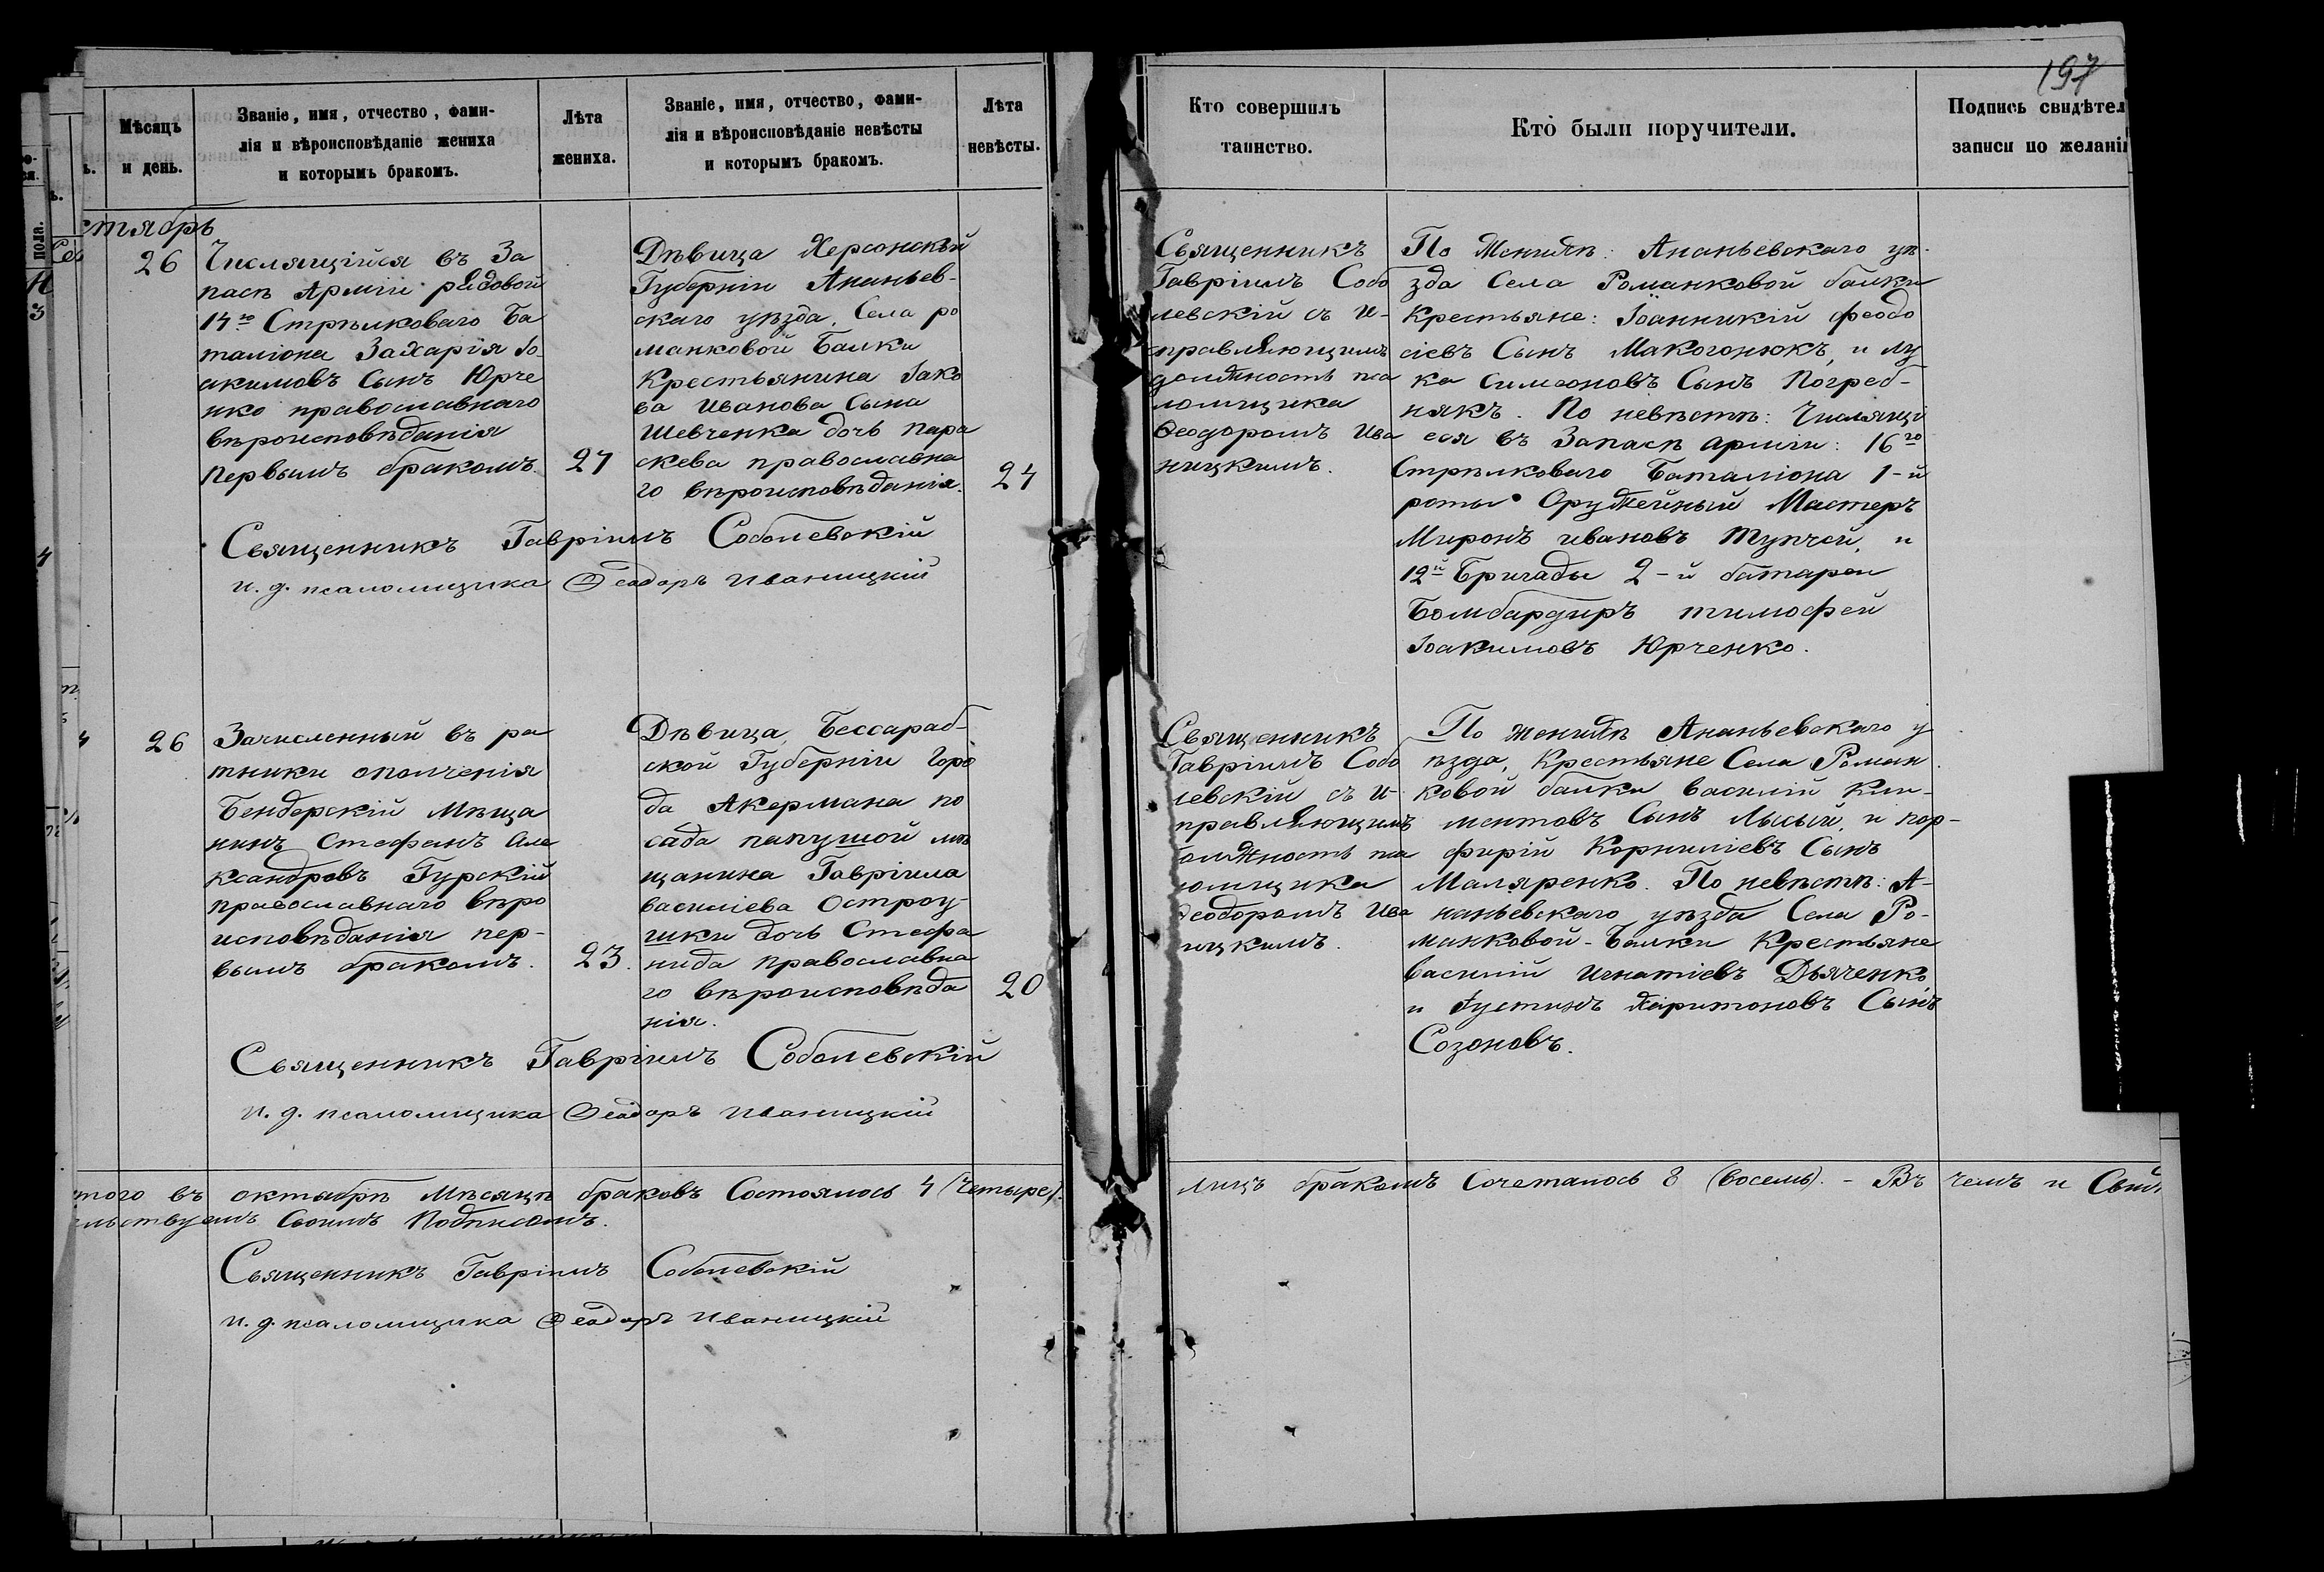 197
Мѣсяцъ
и день.
Званіе, имя, отчество, фами-
лія и вѣроисповѣданіе жениха
и которымъ бракомъ.
Лѣта
жениха.
Званіе, имя, отчество, фами-
лія и вѣроисповѣданіе невѣсты
и которымъ бракомъ.
Лѣта
невѣсты.
Кто совершилъ
таинство.
Кто были поручители.
Подпись свидѣтел
записи по желанію
стябрь
26
Числящійся въ За
пасѣ Арміи рядовой
14го Стрѣлковаго Ба
таліона Захарія Іо
акимовъ Сынъ Юрче
нко православнаго
вѣроисповѣданія
первымъ бракомъ.
27
Дѣвица Херсонской
Губерніи Ананьев-
скаго уѣзда, Села ро
манковой Балки
Крестьянина Іако
ва Иванова Сына
Шевченка дочь Пара
скева православна
го вѣроисповѣданія.
24
Священникъ
Гавріилъ Собо
левскій съ и-
справляющимъ
должность пса
ломщика
Феодоромъ Ива
ницкимъ.
По Женихѣ: Ананьевскаго уѣ-
зда Села Романковой балки
Крестьяне: Іоанникій Феодо
сіевъ Сынъ Макогонюкъ, и лу
ка Симеоновъ Сынъ Погреб-
някъ. По невѣстѣ: Числящі
еся въ Запасѣ арміи: 16го
Стрѣлковаго Баталіона 1-й
роты Оружейный Мастеръ
Миронъ ивановъ Тупчей, и
12й Бригады 2-й батареи
Бомбардиръ тимофей
Іоакимовъ Юрченко.
Священникъ Гавріилъ Соболевскій
и. д. псаломщика Феодоръ Иваницкій
26
Зачисленный въ ра
тники ополченія
Бендерскій Мѣща
нинъ Стефанъ Але
ксандровъ Гурскій
православнаго вѣро
исповѣданія пер-
вымъ бракомъ.
23.
Дѣвица, Бессараб-
ской Губерніи Горо
да Акермана по
сада папушой мѣ
щанина Гавріила
василіева Остроу-
шки дочь Стефа
нида православна
го вѣроисповѣда
нія.
20
Священникъ
Гавріилъ Собо
левскій съ и-
справляющимъ
должность пса
ломщика
Феодоромъ Ива
ицкимъ.
По женихѣ Ананьевскаго у
ѣзда, Крестьяне Села Роман
ковой балки василій Кли-
ментовъ Сынъ Лысый, и пор-
фирій Корниліевъ Сынъ
Маляренко. По невѣстѣ: А-
наньевскаго уѣзда Села Ро-
манковой-Балки Крестьяне
василій игнатіевъ Дьяченко
и Іустинъ Харитоновъ Сынъ
Созоновъ.
Священникъ Гавріилъ Соболевскій
и. д. псаломщика Феодоръ Иваницкій
того въ октябрѣ Мѣсяцѣ браковъ Состоялось 4 (Четыре). лицъ бракомъ Сочеталось 8 (восемь). - Въ чемъ и Свид
льствуемъ Своимъ Подписомъ.
Священникъ Гавріилъ Соболевскій
и. д. псаломщика Феодоръ Иваницкій